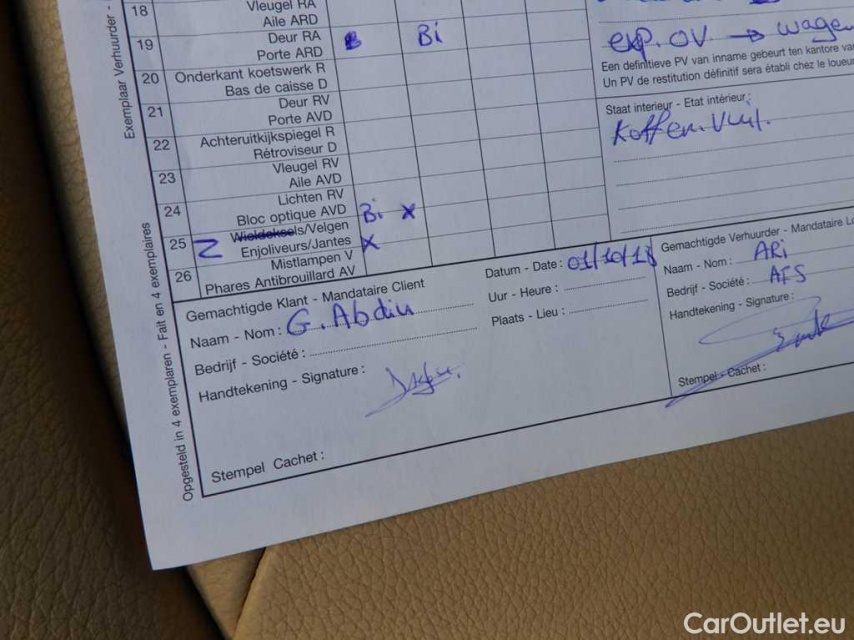 18 Vleugel RA
Aile ARD
19 Deur RA B Bi
Porte ARD
20 Onderkant koetswerk R
Bas de caisse D
21 Deur RV
Porte AVD
22 Achteruitkijkspiegel R
Rétroviseur D
23 Vleugel RV
Aile AVD
24 Lichten RV
Bloc optique AVD Bi x
25 2 Wieldeksels/Velgen
Enjoliveurs/Jantes x
26 Mistlampen V
Phares Antibrouillard AV
Exemplaar Verhuurder -
Opgesteld in 4 exemplaren - Fait en 4 exemplaires
exp. OV → wagen
Een definitieve PV van inname gebeurt ten kantore va
Un PV de restitution définitif sera établi chez le loueu
Staat interieur - Etat intérieur :
Koffer. Vuil.
Gemachtigde Klant - Mandataire Client
Naam - Nom : G. Abdiu
Bedrijf - Société :
Handtekening - Signature :
Stempel Cachet :
Datum - Date : 01/10/18
Uur - Heure :
Plaats - Lieu :
Gemachtigde Verhuurder - Mandataire Lo
Naam - Nom : ARi
Bedrijf - Société : AFS
Handtekening - Signature :
Stempel - Cachet :
CarOutlet.eu